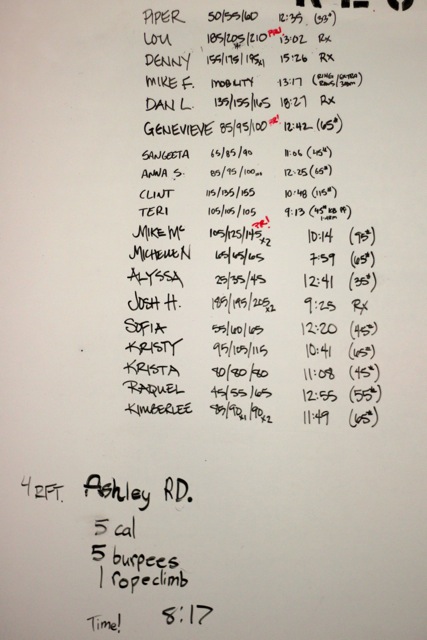 PIPER 50/55/60 12:35 (33#)
LOU 185/205/210 13:02 Rx
DENNY 155/175/185x1 15:26 Rx
MIKE F. MOBILITY 13:17
DAN L. 135/155/165 18:27 Rx
GENEVIEVE 85/95/100 PR! 12:42 (65#)
SANGEETA 65/85/90 11:06 (45#)
ANNA S. 85/95/100 12:25 (65#)
CLINT 115/135/155 10:48 (115#)
TERI 105/105/105 9:13
MIKE Mc 105/125/145x2 PR! 10:14 (95#)
MICHELLE N 65/65/65 7:59 (65#)
ALYSSA 25/35/45 12:41 (35#)
JOSH H. 185/195/205x2 9:25 Rx
SOFIA 55/60/65 12:20 (45#)
KRISTY 95/105/115 10:41 (65#)
KRISTA 80/80/80 11:08 (45#)
RAQUEL 45/55/65 12:55 (55#)
KIMBERLEE 85/90x1/90x2 11:49 (65#)
4 RFT. Ashley RD.
5 cal
5 burpees
1 ropeclimb
Time! 8:17